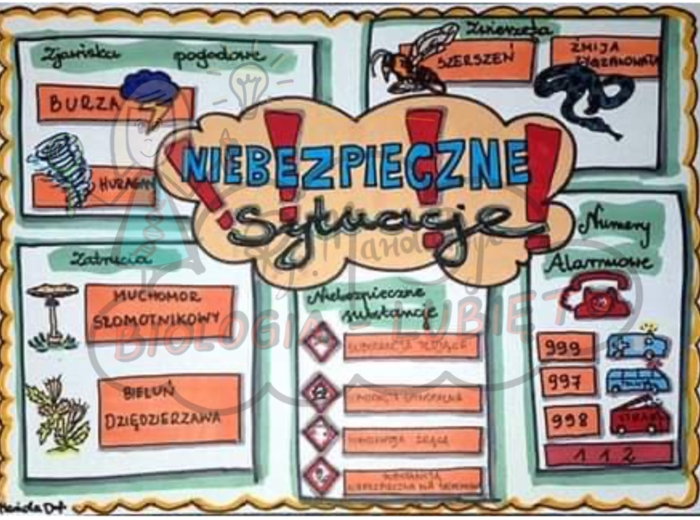 Zjawiska pogodowe
BURZA
HURAGAN
Zwierzęta
SZERSZEŃ
ŻMIJA
ZYGZAKOWATA
NIEBEZPIECZNE
Sytuacje
Zatrucia
MUCHOMOR
SROMOTNIKOWY
BIELUŃ
DZIĘDZIERZAWA
Niebezpieczne
substancje
SUBSTANCJA
SUBSTANCJA
SUBSTANCJA ŻRĄCA
SUBSTANCJA
NIEBEZPIECZNA DLA
Numery
Alarmowe
999
997
998
112
BIOLOGIA - LUBIĘ TO